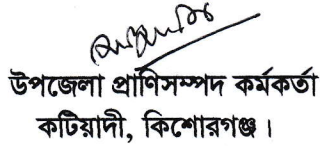 উপজেলা প্রাণিসম্পদ কর্মকর্তা
কটিয়াদী, কিশোরগঞ্জ ।